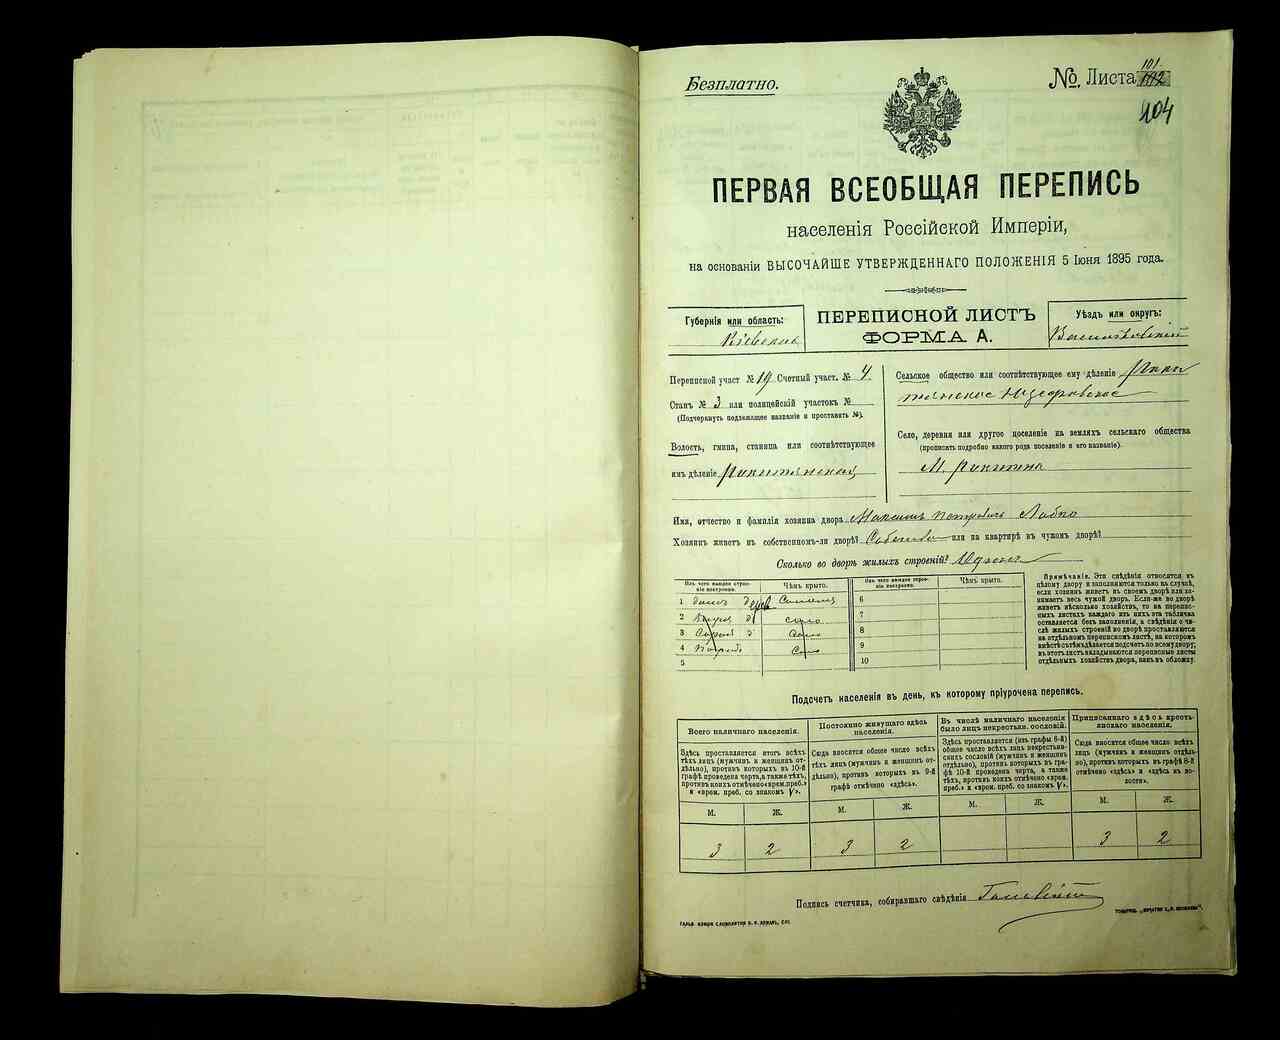 Безплатно.
№ Листа 101
104
ПЕРВАЯ ВСЕОБЩАЯ ПЕРЕПИСЬ
населенія Россійской Имперіи,
на основаніи ВЫСОЧАЙШЕ УТВЕРЖДЕННАГО ПОЛОЖЕНІЯ 5 Іюня 1895 года.
Губернія или область:
Кіевская
ПЕРЕПИСНОЙ ЛИСТЪ
ФОРМА А.
Уѣздъ или округъ:
Васильковскій
Переписной участ № 19 Счетный участ. № 4
Станъ № 3 или полицейскій участокъ №
(Подчеркнуть подлежащее названіе и проставить №).
Волость, гмина, станица или соотвѣтствующее
имъ дѣленіе Ракитянская
Сельское общество или соотвѣтствующее ему дѣленіе Раки
тянское
Село, деревня или другое поселеніе на земляхъ сельскаго общества
(прописать подробно какого рода поселеніе и его названіе).
М. Ракитна
Имя, отчество и фамилія хозяина двора Максимъ Петровъ Лабко
Хозяинъ живетъ въ собственномъ-ли дворѣ? или на квартирѣ въ чужомъ дворѣ?
Сколько во дворѣ жилыхъ строеній? Одно
Изъ чего каждое строеніе построено.
Чѣмъ крыто.
Изъ чего каждое строеніе построено.
Чѣмъ крыто.
1 домъ дерев Солома
2
3 Сарай д
4 Погребъ
5
6
7
8
9
10
Примѣчаніе. Эти свѣдѣнія относятся къ
цѣлому двору и заполняются только на случай,
если хозяинъ живетъ въ своемъ дворѣ или за-
нимаетъ весь чужой дворъ. Если-же во дворѣ
живетъ нѣсколько хозяйствъ, то на перепис-
ныхъ листахъ каждаго изъ нихъ эта табличка
оставляется безъ заполненія, а свѣдѣнія о чи-
слѣ жилыхъ строеній во дворѣ проставляются
на отдѣльномъ переписномъ листѣ, на которомъ
вмѣстѣ съ тѣмъ дѣлается подсчетъ по всему двору;
въ этотъ листъ вкладываются переписные листы
отдѣльныхъ хозяйствъ двора, какъ въ обложку.
Подсчетъ населенія въ день, къ которому пріурочена перепись.
Всего наличнаго населенія.
Здѣсь проставляется итогъ всѣхъ
тѣхъ лицъ (мужчинъ и женщинъ от-
дѣльно), противъ которыхъ въ 10-й
графѣ проведена черта, а также тѣхъ,
противъ коихъ отмѣчено «врем. преб.»
и «врем. преб. со знакомъ V».
М. Ж.
3 2
Постоянно живущаго здѣсь
населенія.
Сюда вносится общее число всѣхъ
тѣхъ лицъ (мужчинъ и женщинъ от-
дѣльно), противъ которыхъ въ 9-й
графѣ отмѣчено «здѣсь».
М. Ж.
3 2
Въ числѣ наличнаго населенія
было лицъ некрестьян. сословій.
Здѣсь проставляется (изъ графы 6-й)
общее число всѣхъ лицъ некрестьян-
скихъ сословій (мужчинъ и женщинъ
отдѣльно), противъ которыхъ въ гра-
фѣ 10-й проведена черта, а также
тѣхъ, противъ коихъ отмѣчено «врем.
преб.» и «врем. преб. со знакомъ V».
М. Ж.
Приписаннаго здѣсь кресть-
янскаго населенія.
Сюда вносится общее число всѣхъ
лицъ (мужчинъ и женщинъ отдѣль-
но), противъ которыхъ въ графѣ 8-й
отмѣчено «здѣсь» и «здѣсь въ во-
лости».
М. Ж.
3 2
Подпись счетчика, собиравшаго свѣдѣнія